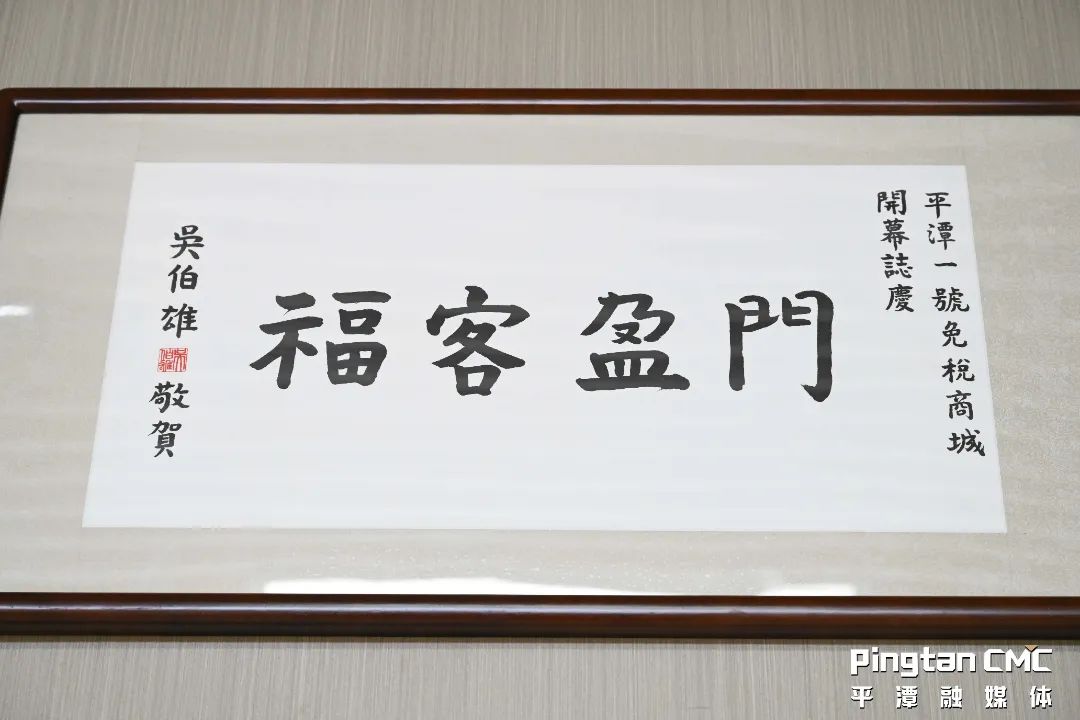 平潭一號免稅商城
開幕誌慶
門盈客福
吳伯雄
敬賀
Pingtan CMC
平潭融媒体